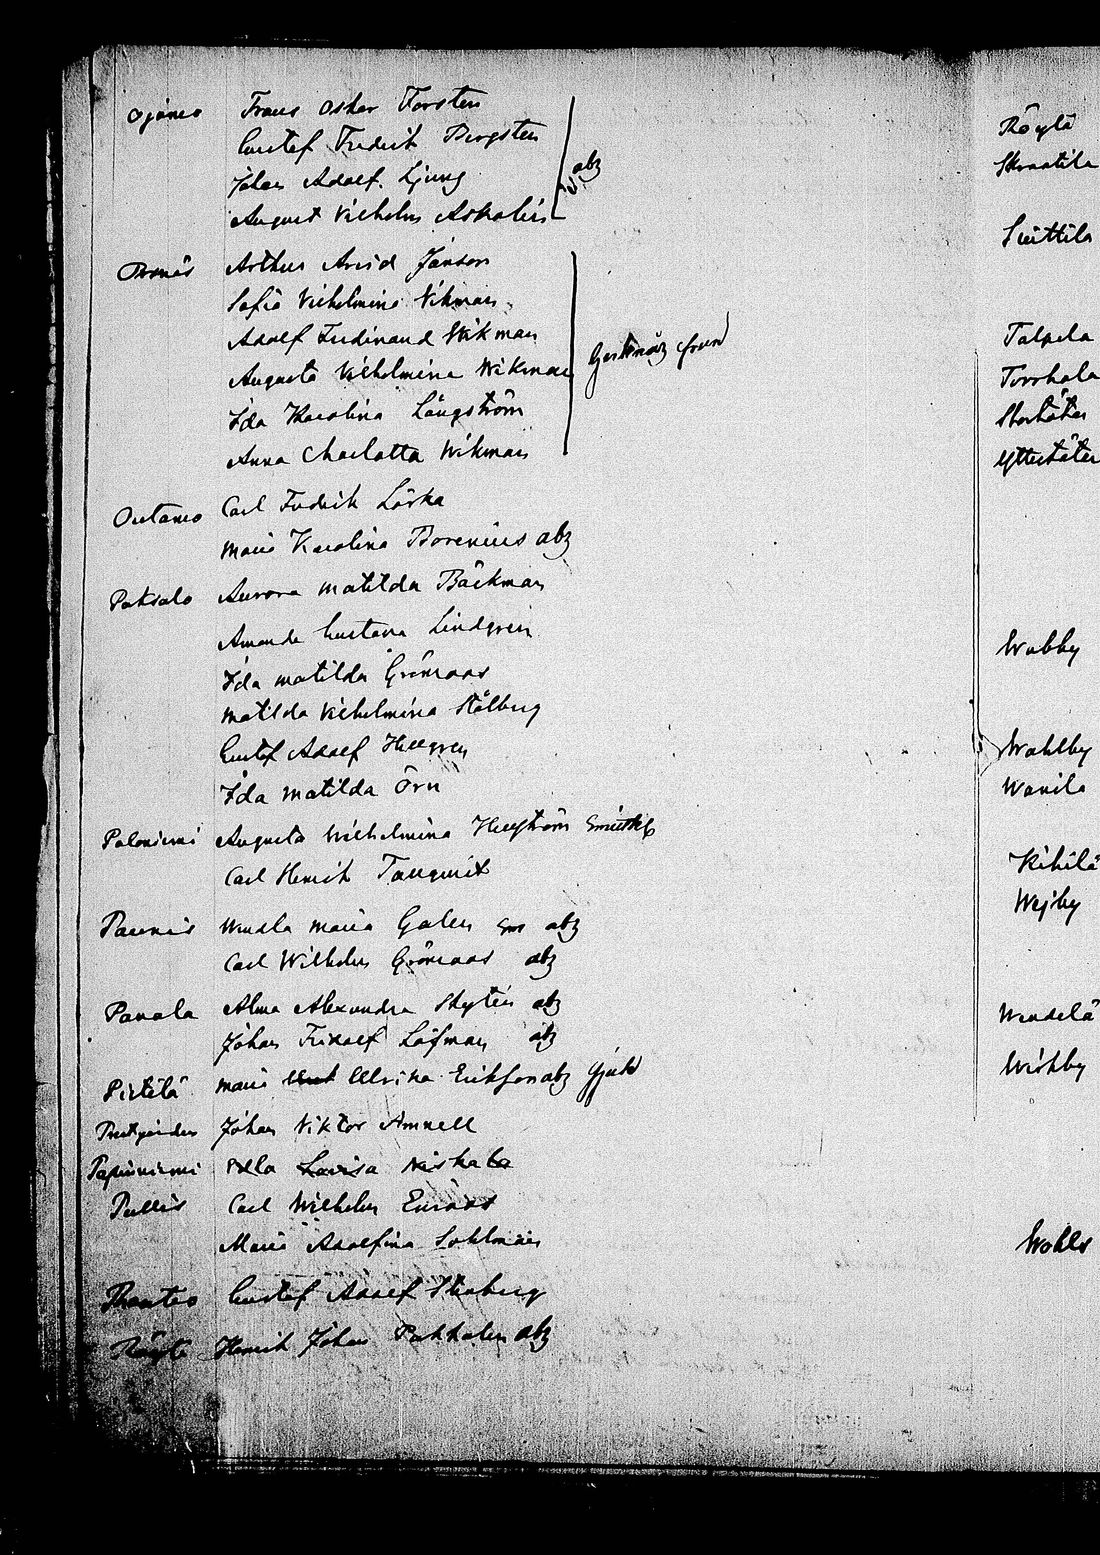 Ojanco Frans Oskar Forsten
Gustaf Fredrik Bergsten
Johan Adolf Ljung
abz
August Vilhelm Askolin
Arthur Arvid Janson
Sofia Vilhelmina Vikman
Adolf Ferdinand Wikman
Augusta Vilhelmina Wikman
Ida Karolina Långström
Anna Charlotta Wikman
Carl Fredrik Lörka
Maria Karolina Borenius abz
Paksalo Aurora Matilda Bäckman
Amanda Gustava Lindgren
Ida Matilda Grönroos
Matilda Vilhelmina Stålberg
Gustaf Adolf Hellgren
Ida Matilda Örn
Poloniemi Augusta Wilhelmina Hellström
Carl Henrik Tallqvist
Maria Galen abz
Carl Wilhelm Grönroos abz
Panala Alma Alexandra Skytén abz
Johan Fridolf Löfman abz
Pietilä Maria Ulrika Erikson abz
Johan Viktor Amnell
Papinniemi Lovisa Niskala
Pullis Carl Wilhelm Enroos
Maria Adolfina Sohlman
Gustaf Adolf Stenberg
Röyte Henrik Johan Pakkalen abz
Röylä
Skraatila
Talpela
Torrhala
Yttertåter
Wabby
Wahlby
Wanila
Kihilä
Wejby
Wendelä
Wishby
Wohls